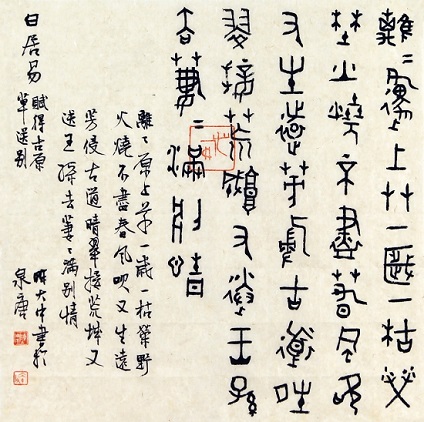 離〻原上艸一歲一枯榮
野火燒不盡春風吹
又生遠芳侵古道晴
翠接荒城又送王孫
去萋〻滿別情
離〻原上草一歲一枯榮野
火燒不盡春風吹又生遠
芳侵古道晴翠接荒城又
送王孫去萋〻滿別情
白居易
賦得古原
草送別
大中書於
泉唐